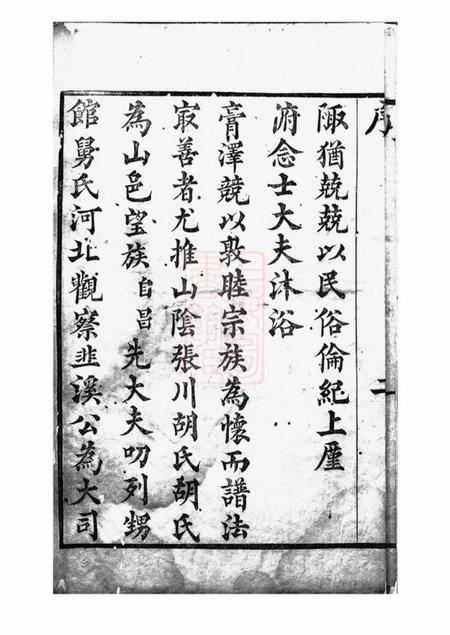 序
二
陬猶兢兢以民俗倫紀上廑
府念士大夫沐浴
膏澤競以敦睦宗族為懷而譜法
㝡善者尤推山陰張川胡氏胡氏
為山邑望族自昌先大夫叨列甥
館舅氏河北觀察韭溪公為大司